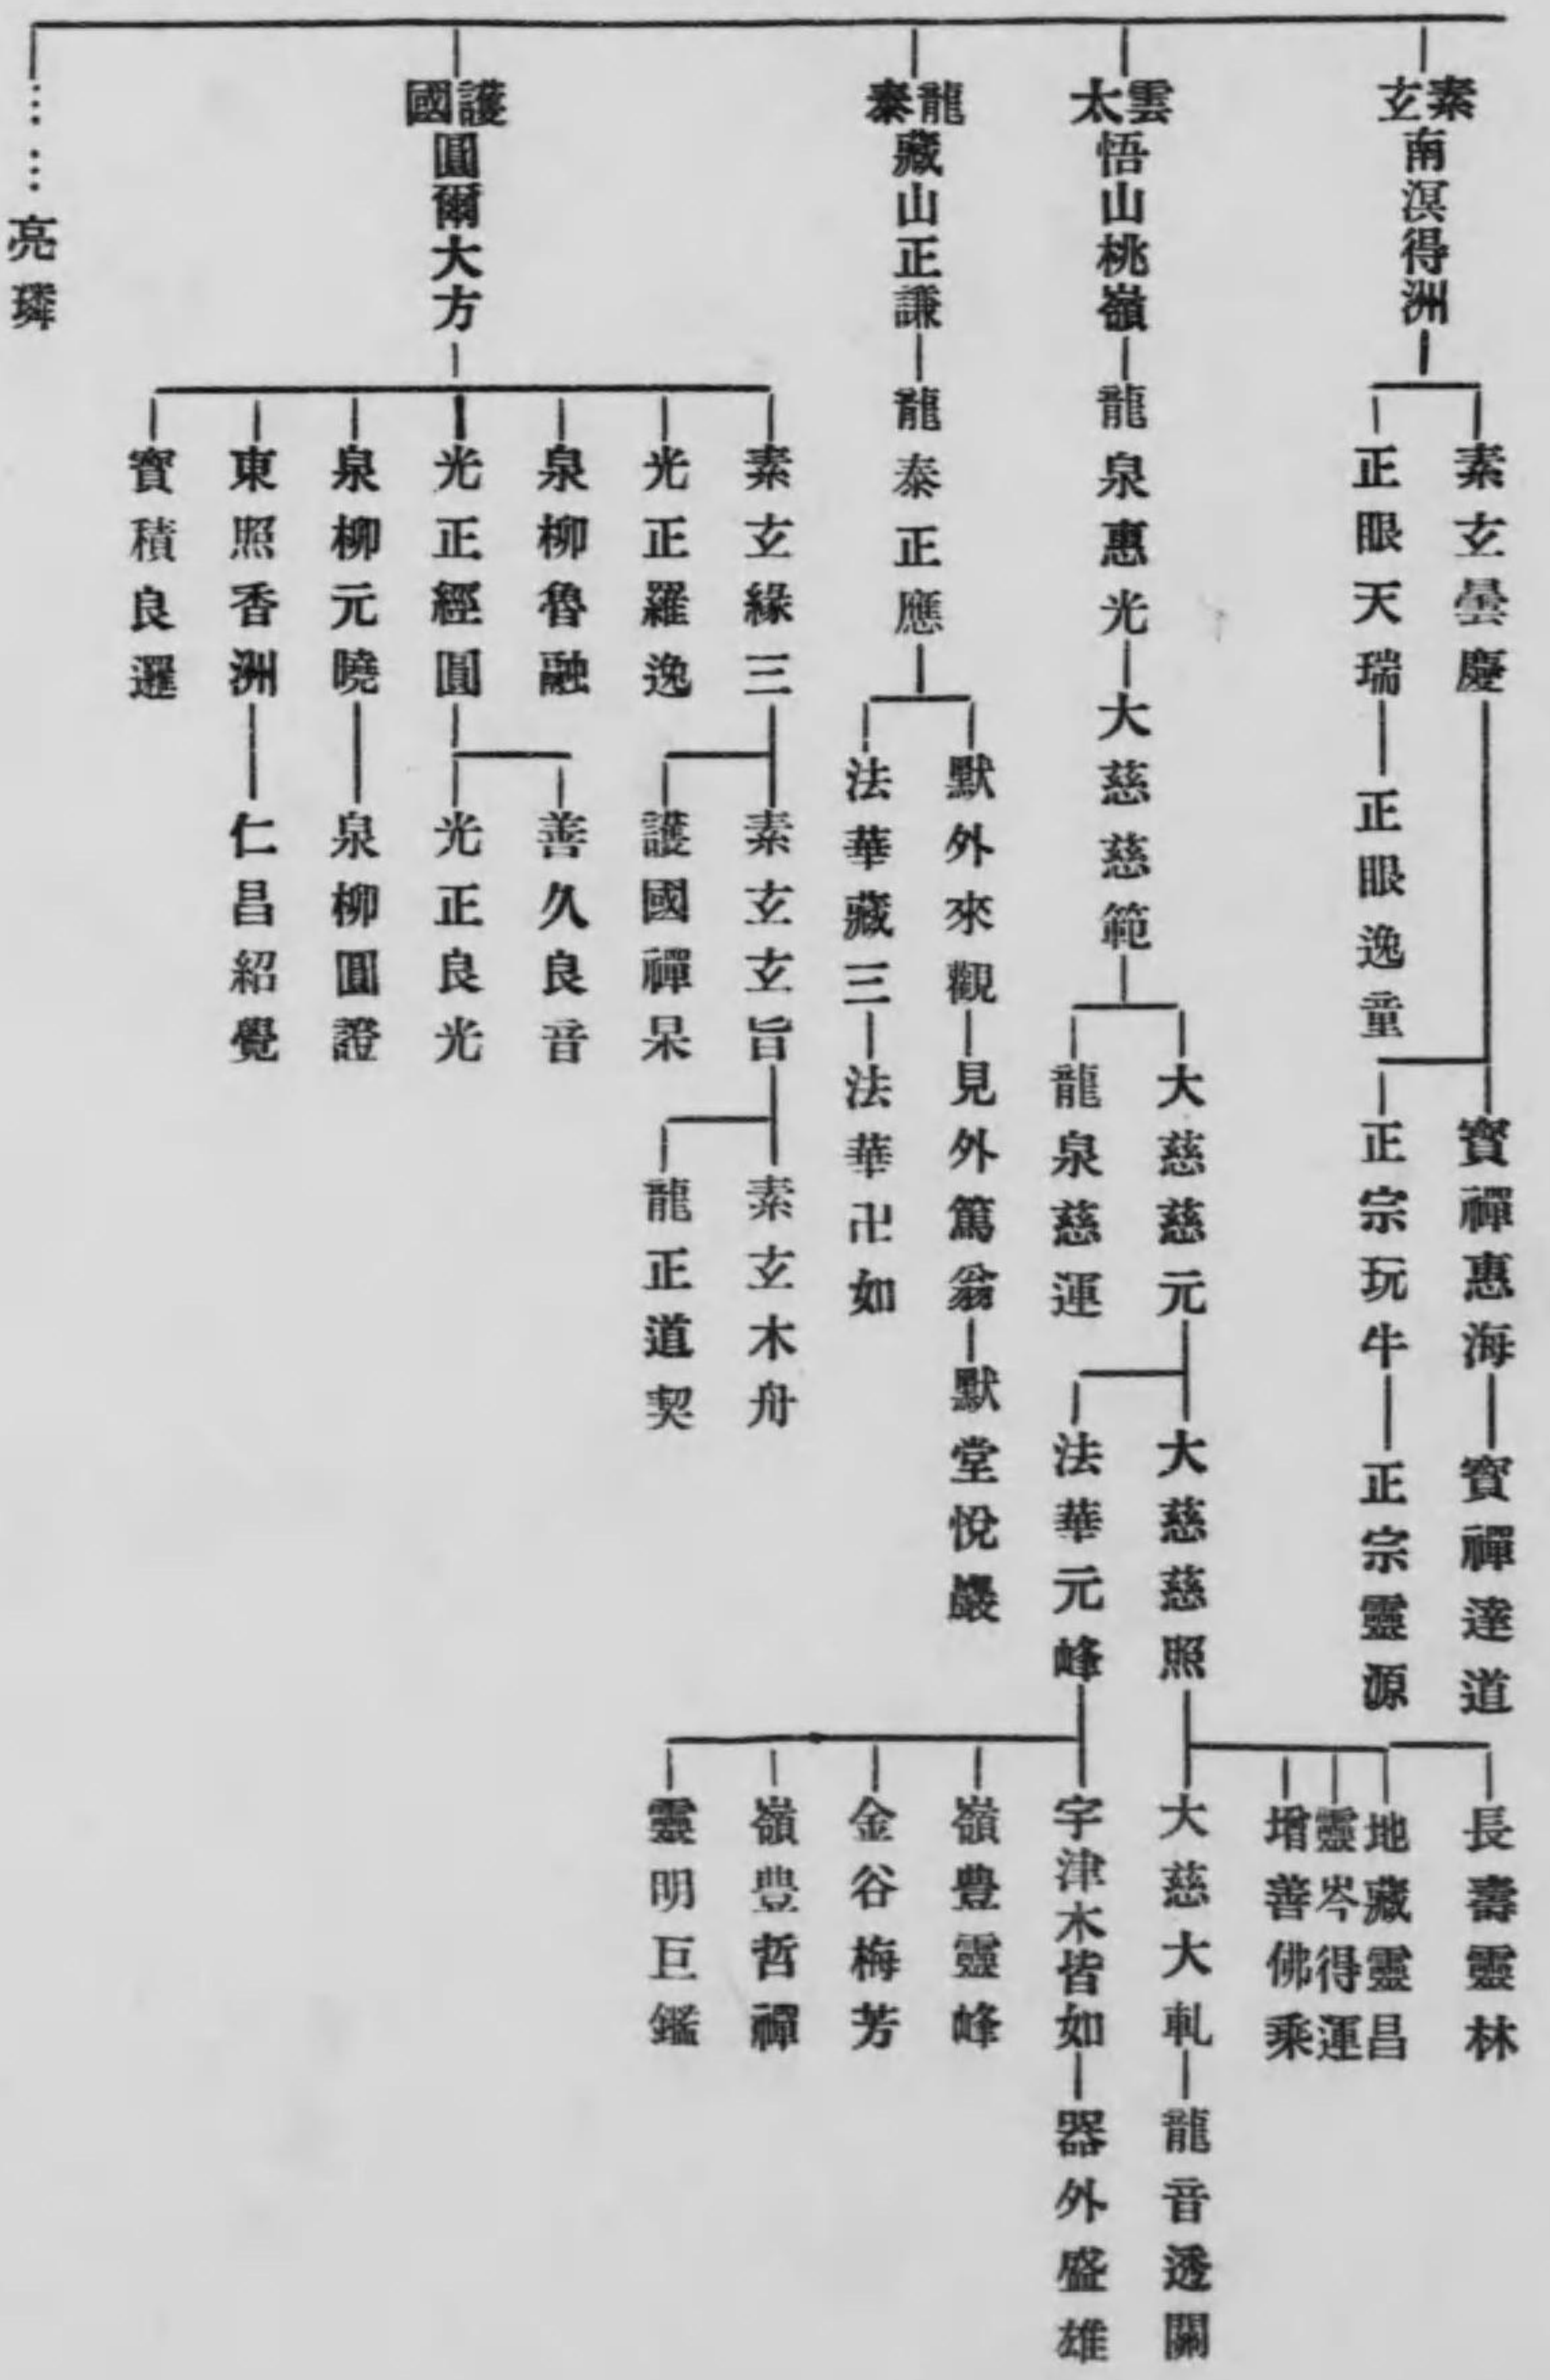 素玄南溟得洲
素玄曇慶
寶禪惠海
寶禪達道
正眼天瑞
正眼逸童
正宗玩牛
正宗靈源
雲太悟山桃嶺
龍泉惠光
大慈慈範
大慈慈元
大慈慈照
長壽靈林
地藏靈昌
靈岑得運
增善佛乘
大慈大軋
龍音透關
法華元峰
宇津木皆如
器外盛雄
嶺豊靈峰
金谷梅芳
嶺豊哲禪
靈明巨鑑
龍泉慈運
龍泰藏山正謙
龍泰正應
默外來觀
見外篤翁
默堂悅巖
法華藏三
法華卍如
護國圓爾大方
素玄緣三
素玄玄旨
素玄木舟
龍正道契
護國禪杲
光正羅逸
泉柳魯融
光正經圓
善久良音
光正良光
泉柳元曉
泉柳圓證
東照香洲
仁昌紹覺
寶積良暹
……亮璘